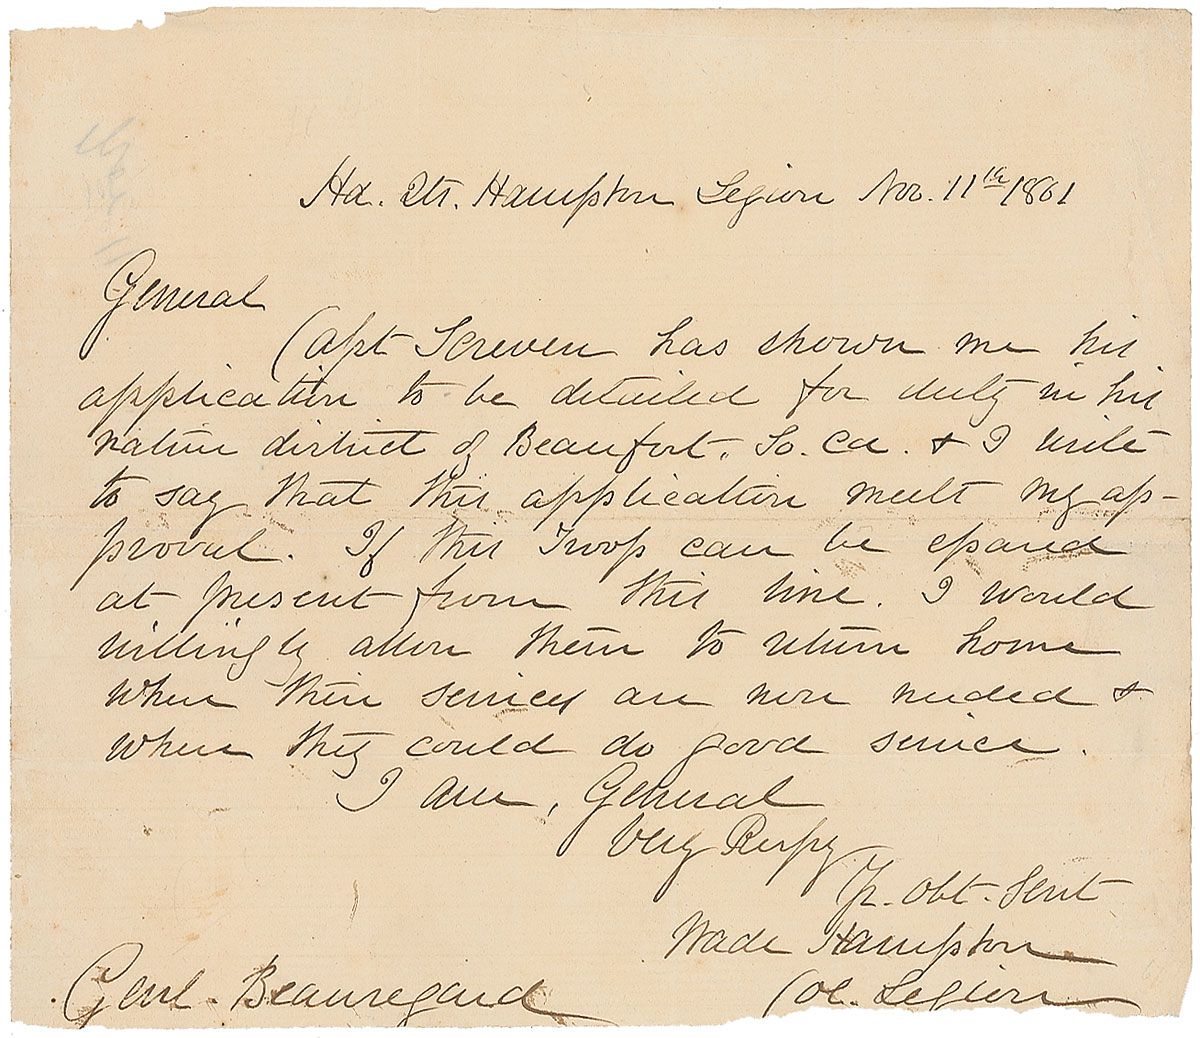 Hd. Qtr. Hampton Legion Nov. 11th 1861
General
Capt Screven has shown me his
application to be detailed for duty in his
native district of Beaufort, So. Ca. & I write
to say that this application meets my ap-
proval. If this Troop can be spared
at present from this line. I would
willingly allow them to return home
when their services are now needed &
where they could do good service.
I am, General
Very Respy
Yr. Obt. Sert
Wade Hampton
Col. Legion
Genl. Beauregard